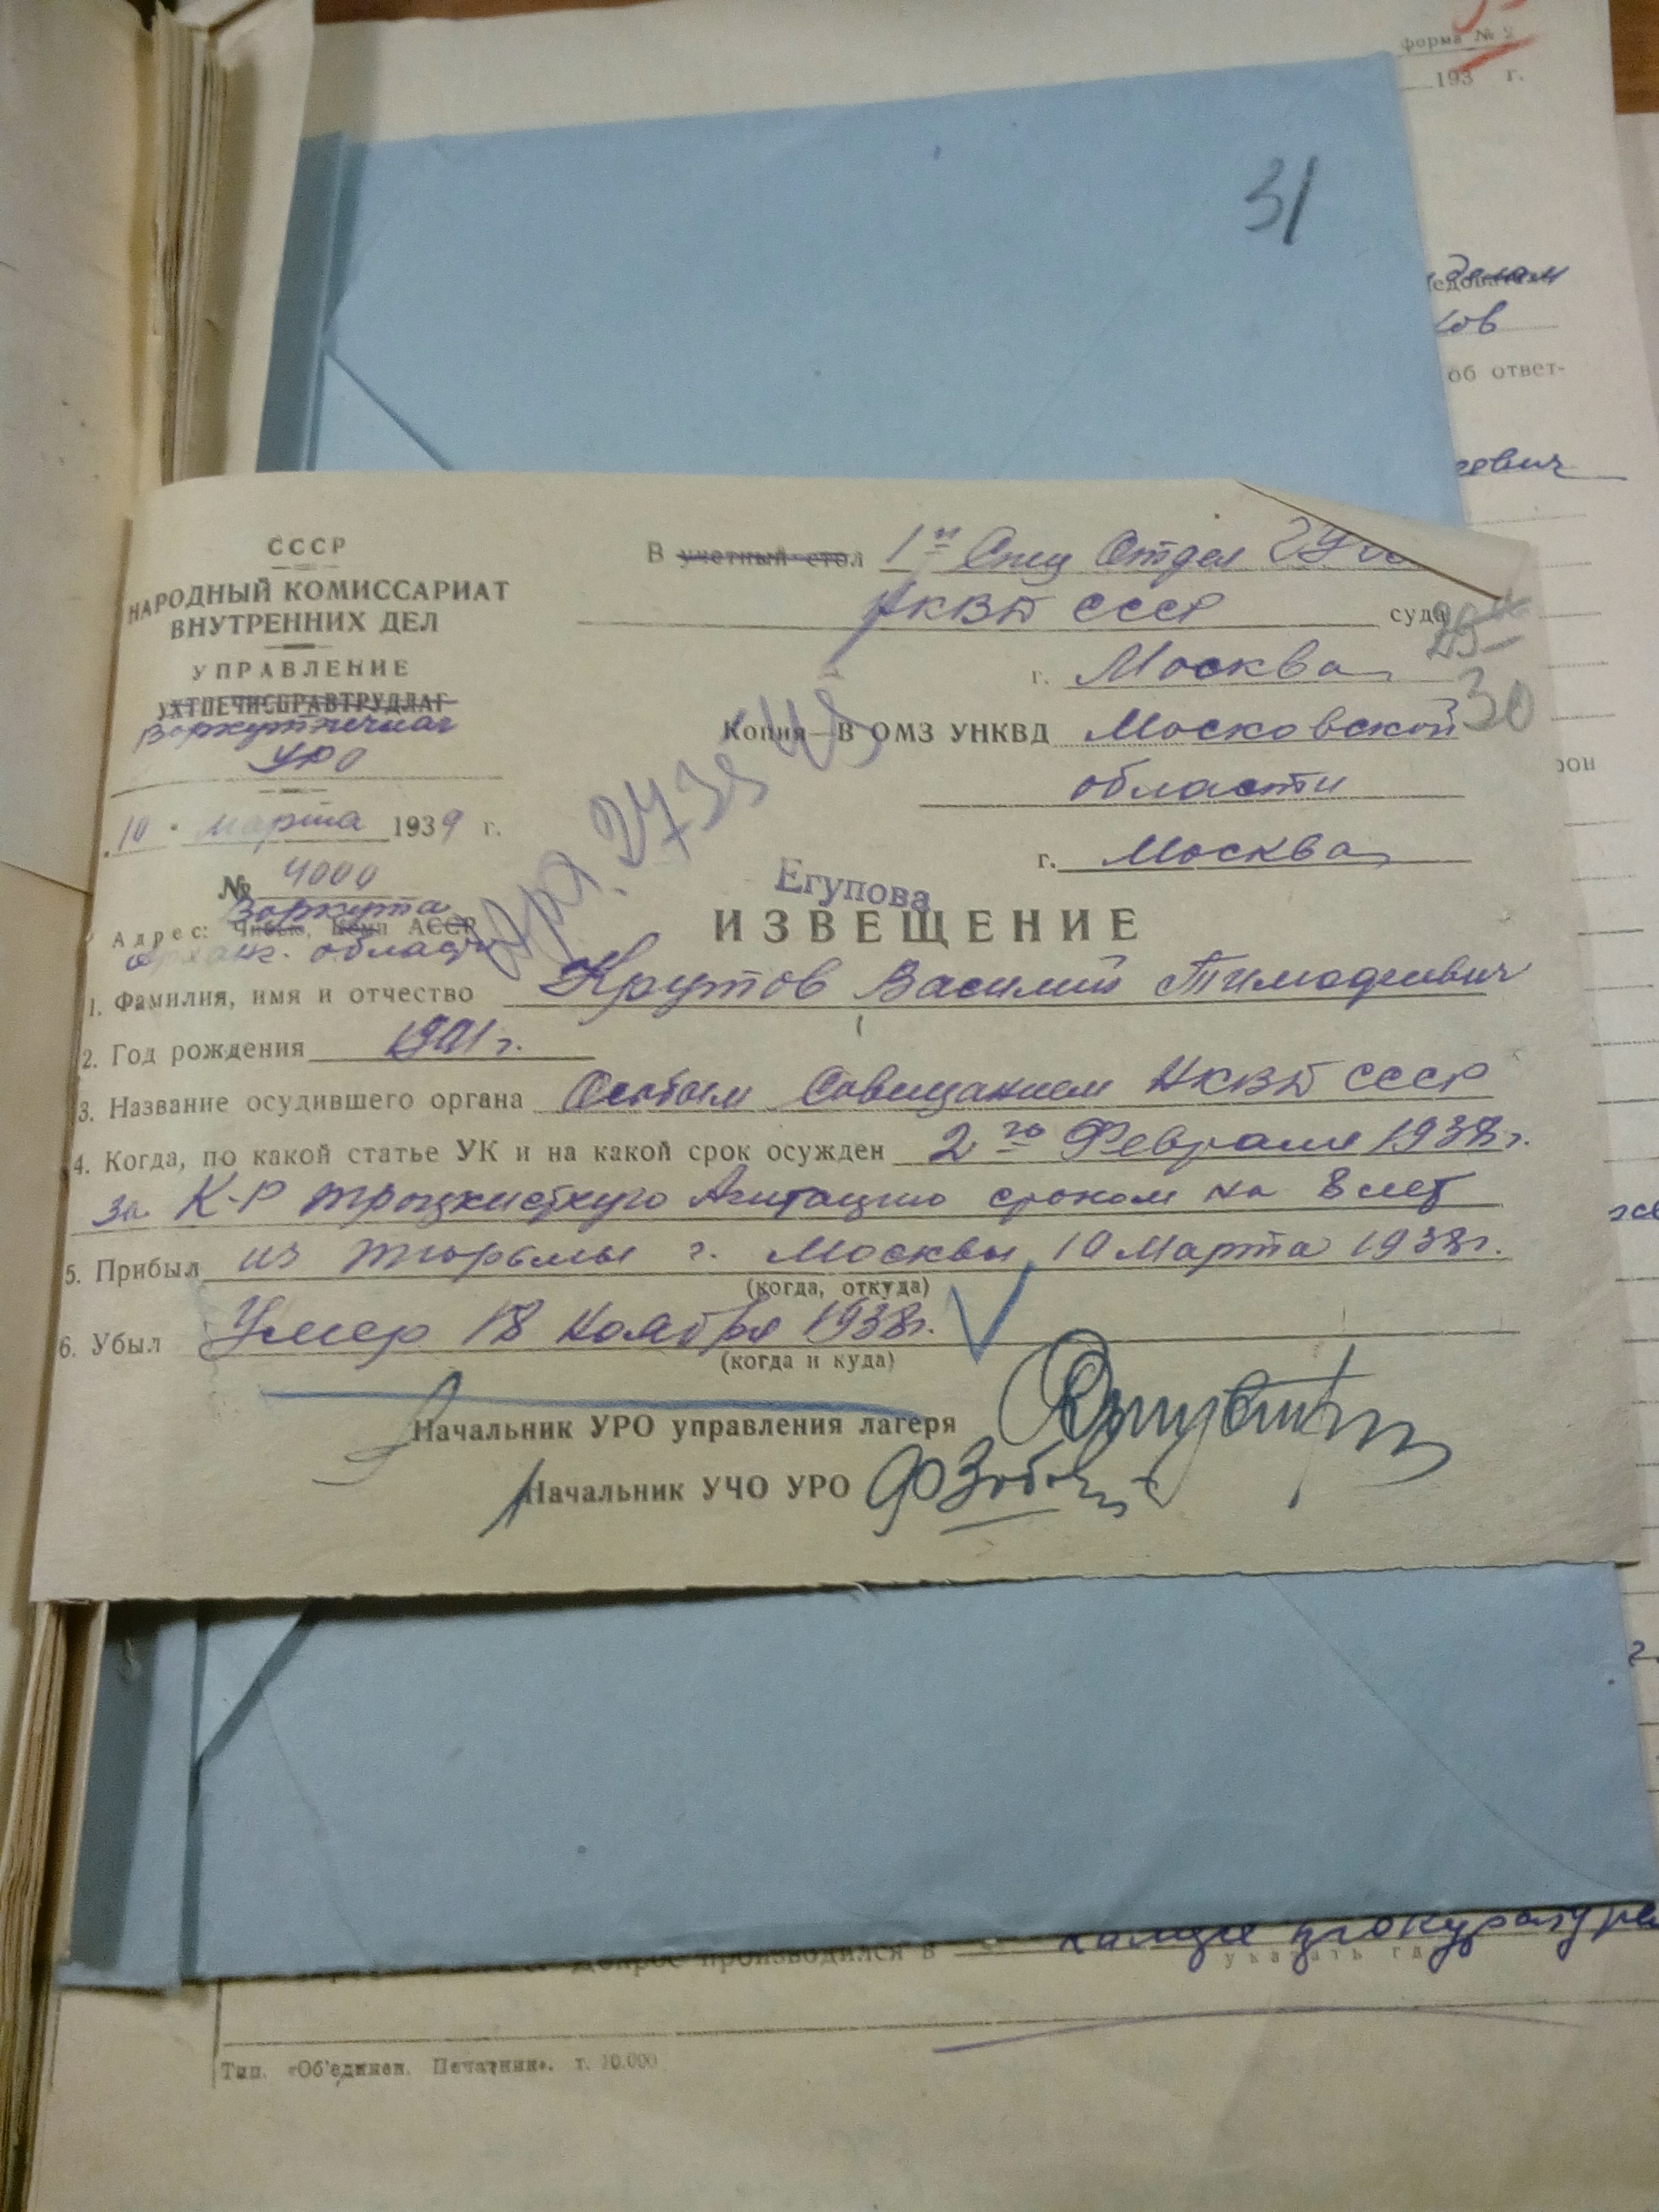 форма № 2
193 г.
31
ков
об ответ-
евич
СССР
НАРОДНЫЙ КОМИССАРИАТ
ВНУТРЕННИХ ДЕЛ
УПРАВЛЕНИЕ
УХТПЕЧИСПРАВТРУДЛАГ
Воркутпечлаг
УРО
10 " марта 1939 г.
№ 4000
Воркута
Адрес: Чибью, Коми АССР
Арханг. области
В учетный стол 1й Спец Отдел
НКВД СССР суда
29
г. Москва
30
Копия—В ОМЗ УНКВД Московской
области
г. Москва
Арх. 2735
Егупова
ИЗВЕЩЕНИЕ
1. Фамилия, имя и отчество Крутов Василий Тимофеевич
2. Год рождения 1901 г.
3. Название осудившего органа Особым Совещанием НКВД СССР
4. Когда, по какой статье УК и на какой срок осужден 2го Февраля 1938 г.
за К-Р троцкистскую Агитацию сроком на 8 лет
5. Прибыл из тюрьмы г. Москвы, 10 Марта 1938г.
(когда, откуда)
6. Убыл Умер 18 Ноября 1938г.
(когда и куда)
Начальник УРО управления лагеря
Начальник УЧО УРО
рон
Допрос производился в
указать г
Тип. «Об'единен. Печатник». т. 10.000